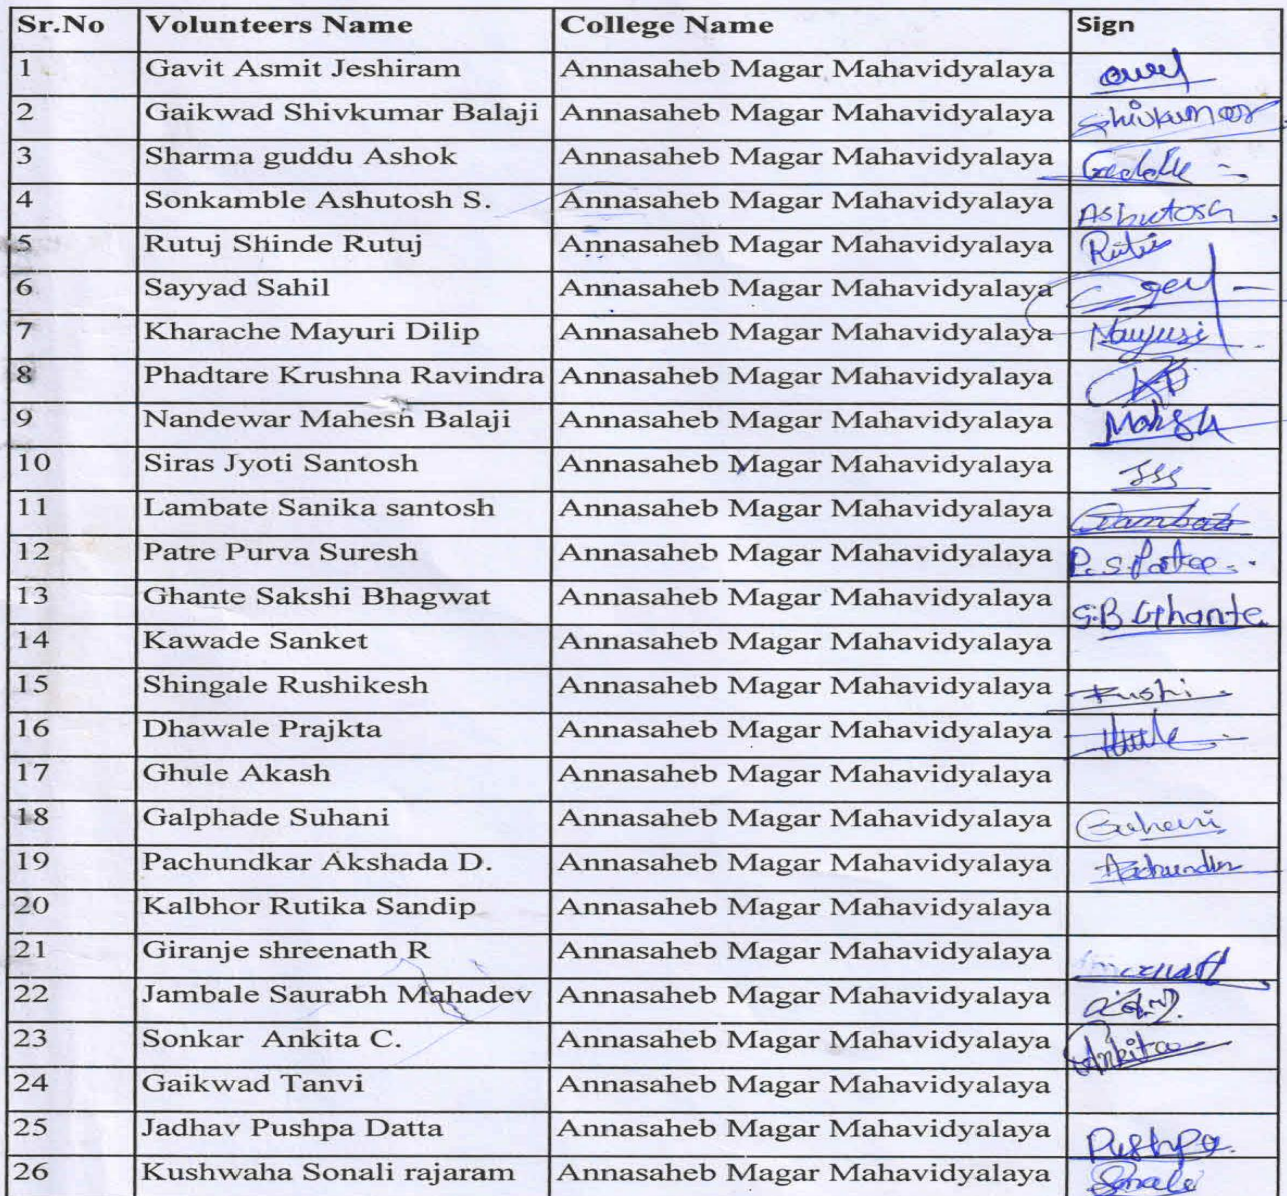 Sr.No Volunteers Name College Name Sign
1 Gavit Asmit Jeshiram Annasaheb Magar Mahavidyalaya
2 Gaikwad Shivkumar Balaji Annasaheb Magar Mahavidyalaya Shivkumar
3 Sharma guddu Ashok Annasaheb Magar Mahavidyalaya Guddu
4 Sonkamble Ashutosh S. Annasaheb Magar Mahavidyalaya Ashutosh
5 Rutuj Shinde Rutuj Annasaheb Magar Mahavidyalaya
6 Sayyad Sahil Annasaheb Magar Mahavidyalaya
7 Kharache Mayuri Dilip Annasaheb Magar Mahavidyalaya Mayuri
8 Phadtare Krushna Ravindra Annasaheb Magar Mahavidyalaya
9 Nandewar Mahesh Balaji Annasaheb Magar Mahavidyalaya
10 Siras Jyoti Santosh Annasaheb Magar Mahavidyalaya
11 Lambate Sanika santosh Annasaheb Magar Mahavidyalaya
12 Patre Purva Suresh Annasaheb Magar Mahavidyalaya P.S.Patre
13 Ghante Sakshi Bhagwat Annasaheb Magar Mahavidyalaya S.B Ghante
14 Kawade Sanket Annasaheb Magar Mahavidyalaya
15 Shingale Rushikesh Annasaheb Magar Mahavidyalaya Rushi
16 Dhawale Prajkta Annasaheb Magar Mahavidyalaya
17 Ghule Akash Annasaheb Magar Mahavidyalaya
18 Galphade Suhani Annasaheb Magar Mahavidyalaya Suhani
19 Pachundkar Akshada D. Annasaheb Magar Mahavidyalaya
20 Kalbhor Rutika Sandip Annasaheb Magar Mahavidyalaya
21 Giranje shreenath R Annasaheb Magar Mahavidyalaya
22 Jambale Saurabh Mahadev Annasaheb Magar Mahavidyalaya
23 Sonkar Ankita C. Annasaheb Magar Mahavidyalaya Ankita
24 Gaikwad Tanvi Annasaheb Magar Mahavidyalaya
25 Jadhav Pushpa Datta Annasaheb Magar Mahavidyalaya Pushpa
26 Kushwaha Sonali rajaram Annasaheb Magar Mahavidyalaya Sonali